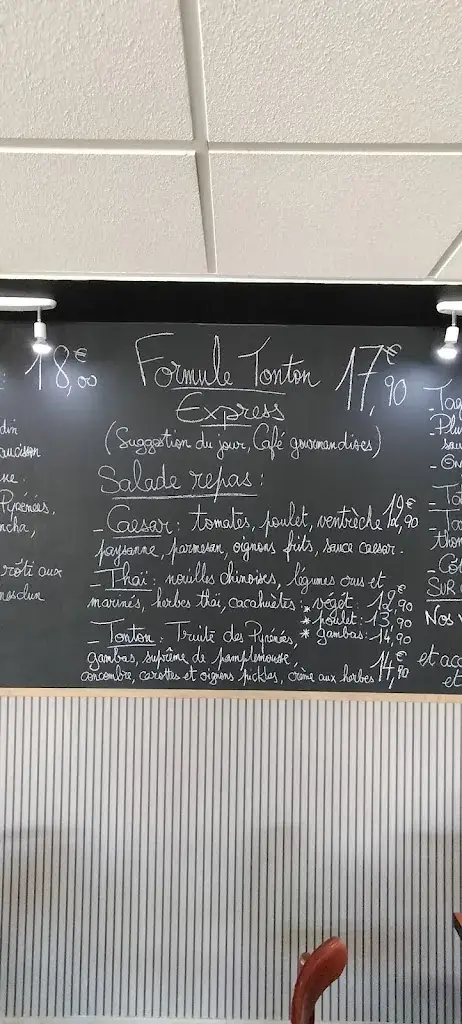 18,00€
din
Pyrénées,
rôti aux
Formule Tonton 17,90€
Express
(Suggestion du jour, Café gourmandises)
Salade repas :
- Caesar : tomates, poulet, ventrèche 12,90€
paysanne, parmesan, oignons frits, sauce caesar.
- Thaï : nouilles chinoises, légumes crus et
marinés, herbes thaï, cacahuètes : * végét : 12,90€
* poulet : 13,90
- Tonton : Truite des Pyrénées, * gambas : 14,90
gambas, suprême de pamplemousse,
concombre, carottes et oignons pickles, crème aux herbes 14,90€
SUR
Nos
et acc
et